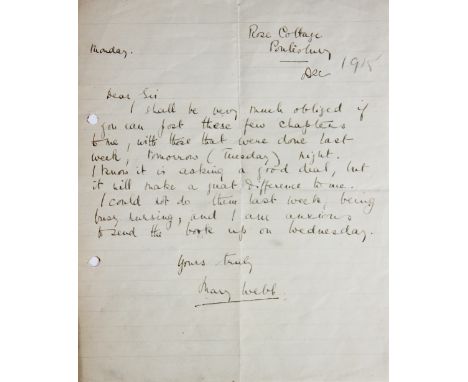 Rose Cottage
Monday. Pontesbury
Dec 1915
Dear Sir
I shall be very much obliged if
you can post these few chapters
to me, with those that were done last
week, tomorrow (Tuesday) night.
I know it is asking a good deal, but
it will make a great difference to me.
I could not do them last week, being
busy nursing, and I am anxious
to send the book up on Wednesday.
Yours truly
Mary Webb.